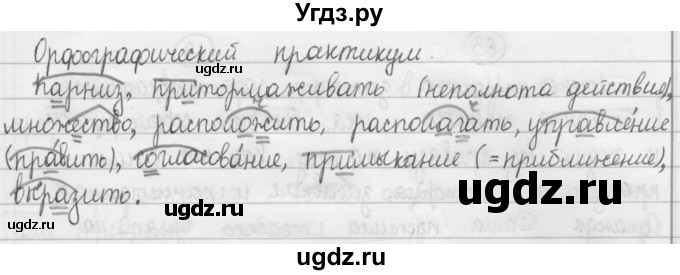 Угдз.ру
Орфографический практикум.
Карниз, приторцаживать (неполнота действия),
множество, расположить, располагать, управление
(править), согласование, примыкание (=приближение),
вкразить.
ugdz.ru
ugdz.ru
ugdz.ru
ugdz.ru
ugdz.ru
ugdz.ru
ugdz.ru
ugdz.ru
ugdz.ru